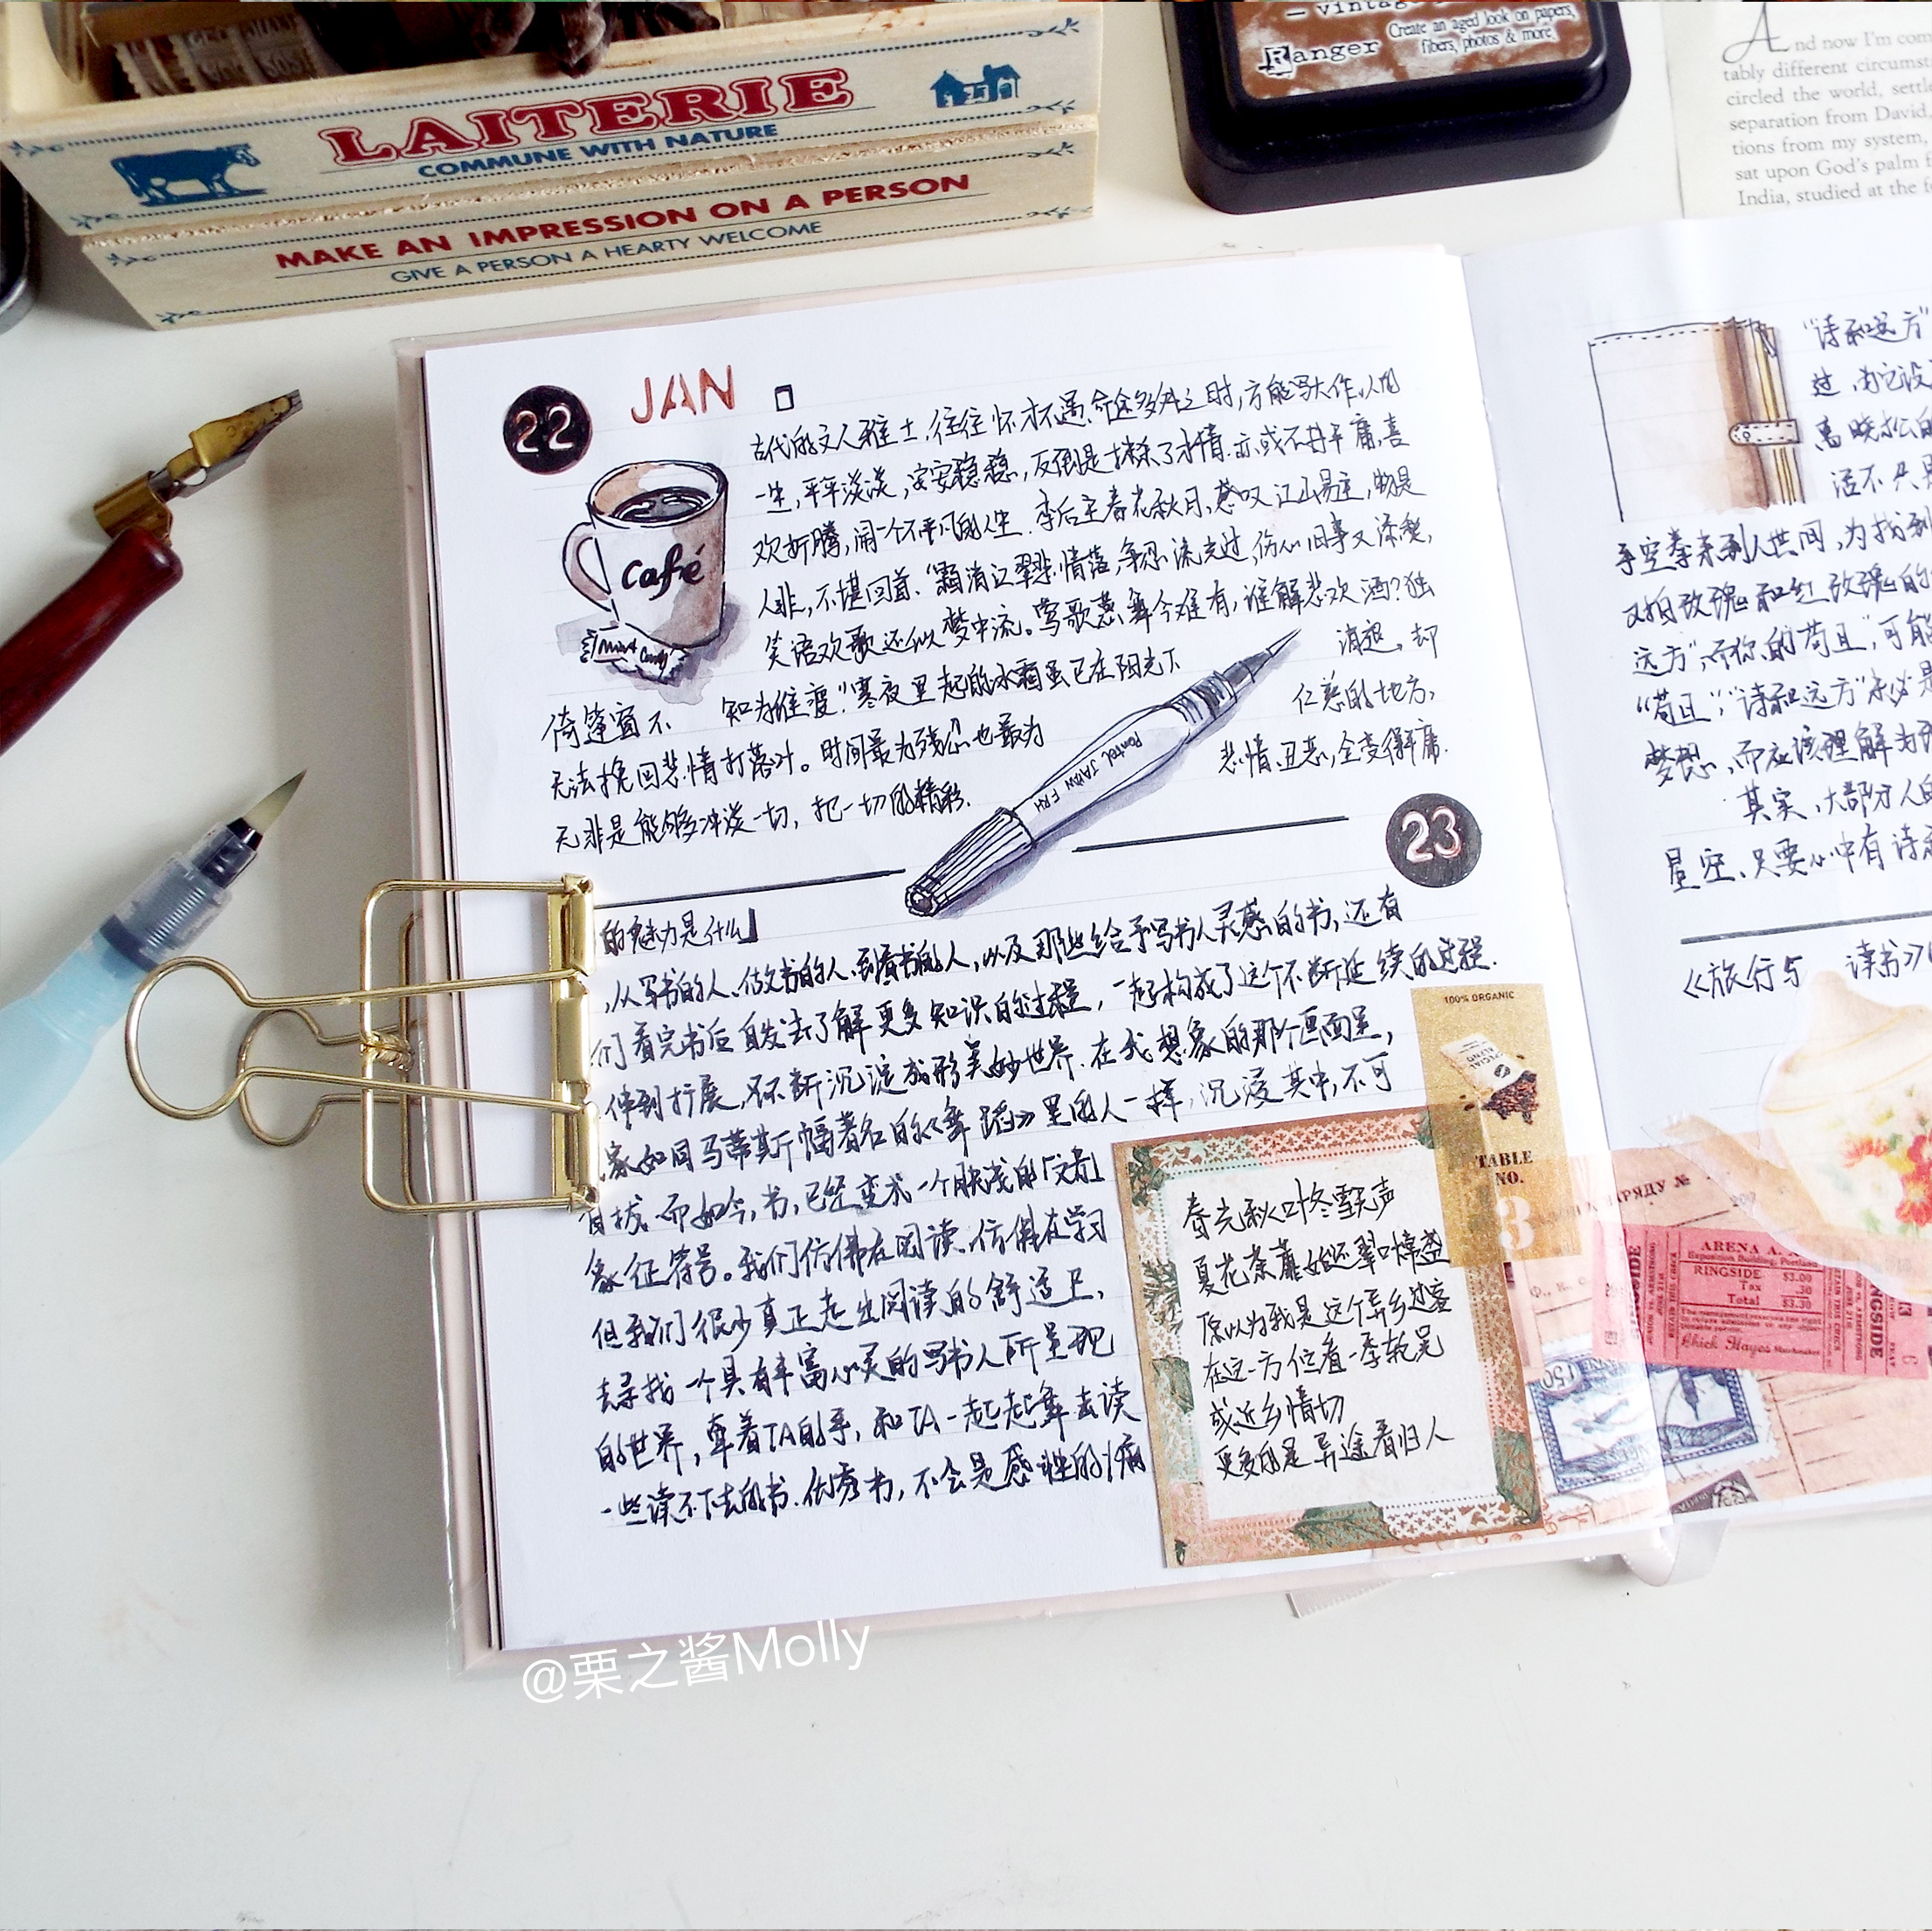 LAITERIE
COMMUNE WITH NATURE
MAKE AN IMPRESSION ON A PERSON
GIVE A PERSON A HEARTY WELCOME
vintag
Ranger
Create an aged look on papers,
fibers, photos & more.
And now I'm com
tably different circumst
circled the world, settl
separation from David,
tions from my system,
sat upon God's palm f
India, studied at the f
22
JAN
古代的文人雅士,往往怀才不遇、命途多舛之时,方能写大作.人间
一生,平平淡淡,安安稳稳,反倒是抹杀了才情.亦或不甘平庸,喜
欢折腾,闹一个不平凡的人生.李后主春花秋月,感叹江山易主,物是
人非,不堪回首.
伤心旧事又添愁,
笑语欢歌还似梦中流。莺歌燕舞今难有,谁解悲欢酒?独
倚篷窗不知为谁瘦."寒夜里起的冰霜虽已在阳光下消退,却
无法挽回悲情打落叶。时间最为残忍也最为仁慈的地方,
无非是能够冲淡一切,把一切的精彩.悲情.丑恶,全变得平庸.
Café
Pentel JAPAN FRH
23
的魅力是什么」
,从写书的人、做书的人、到看书的人,以及那些给予写书人灵感的书,还有
们看完书后自发去了解更多知识的过程,一起构成了这个不断延续的过程.
伸到扩展,不断沉淀成形美妙世界.在我想象的那个画面里,
家如同马蒂斯幅著名的《舞蹈》里的人一样,沉浸其中,不可
自拔.而如今,书,已经变成一个肤浅的「文青」
象征符号。我们仿佛在阅读、仿佛在学习
但我们很少真正走出阅读的舒适区,
去寻找一个具有丰富心灵的写书人所呈现
的世界,牵着TA的手,和TA一起起舞.去读
一些读不下去的书.优秀书,不会是感性的
春光秋叶冬雪无声
夏花荼蘼
原以为我是这个异乡过客
在这一方位看一季轮
或近乡情切
更多的是异途看归人
100% ORGANIC
TABLE
NO.
3
"诗和远方"
过,
高晓松
活不只
手空拳来到人世间,为找到
又拍玫瑰和红玫瑰的
远方",而你的"苟且",可能
"苟且","诗和远方"未必是
梦想,而应该理解为
其实,大部分人的
星空、只要心中有诗
《旅行与读书》
ARENA A.
RINGSIDE $3.00
Tax .30
Total $3.30
Chick Hayes
RINGSIDE
150
@栗之酱Molly